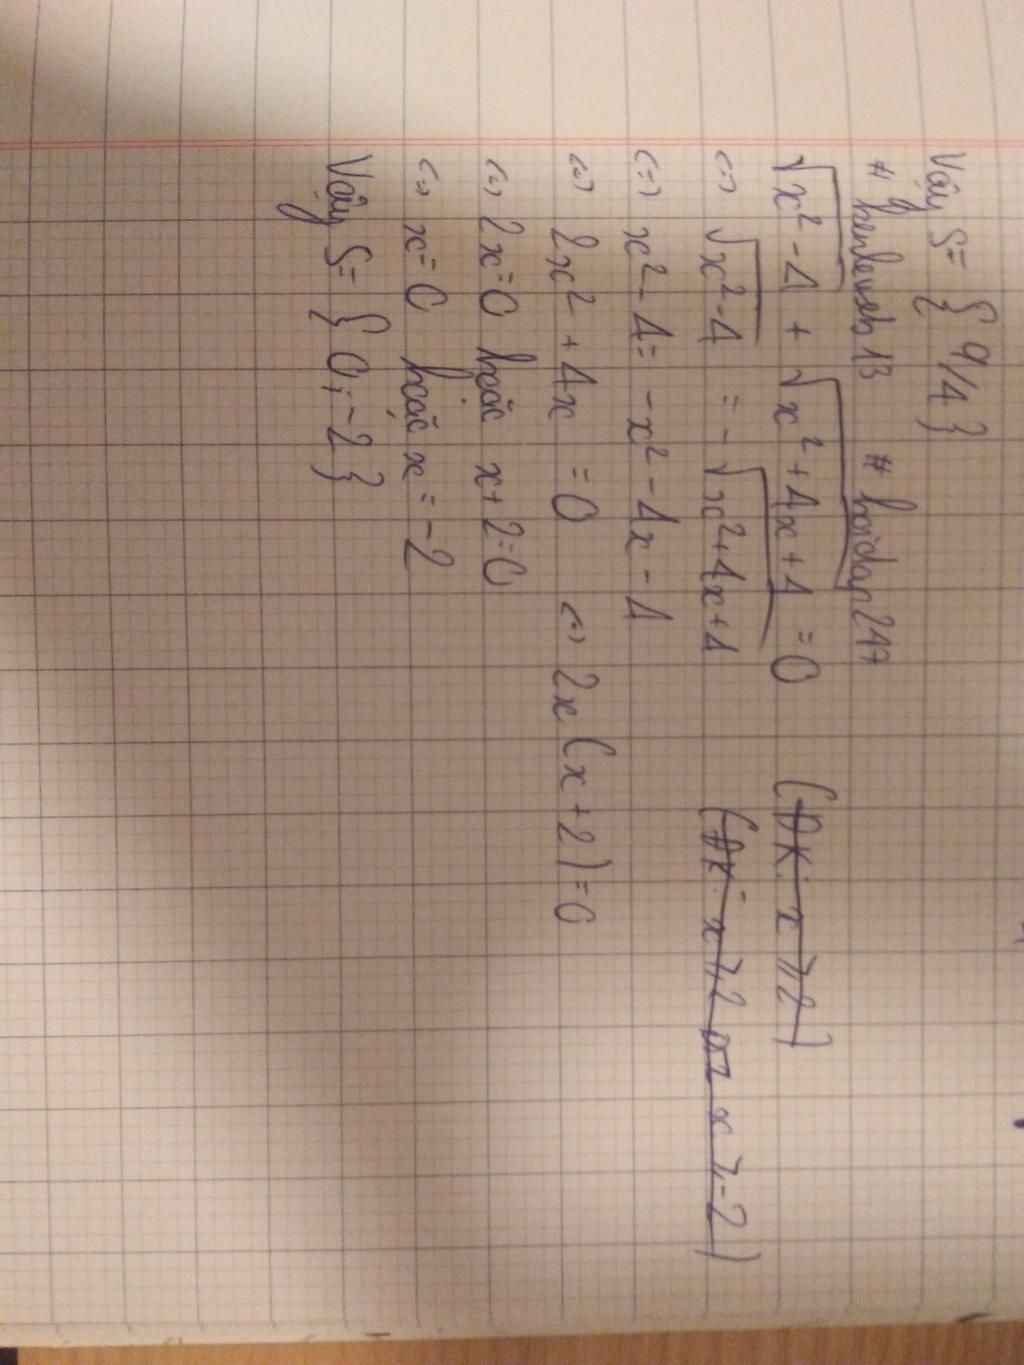 Vậy S= { 9/4 }
# kenleweb13 # hoidap247
√x² - 4 + √x² + 4x + 4 = 0 (ĐK: x ⩾ 2)
<=> √x² - 4 = - √x² + 4x + 4 (ĐK: x ⩾ 2 x ⩾ -2)
<=> x² - 4 = - x² - 4x - 4
<=> 2x² + 4x = 0 <=> 2x (x + 2) = 0
<=> 2x = 0 hoặc x + 2 = 0
<=> x = 0 hoặc x = -2
Vậy S= { 0; -2 }